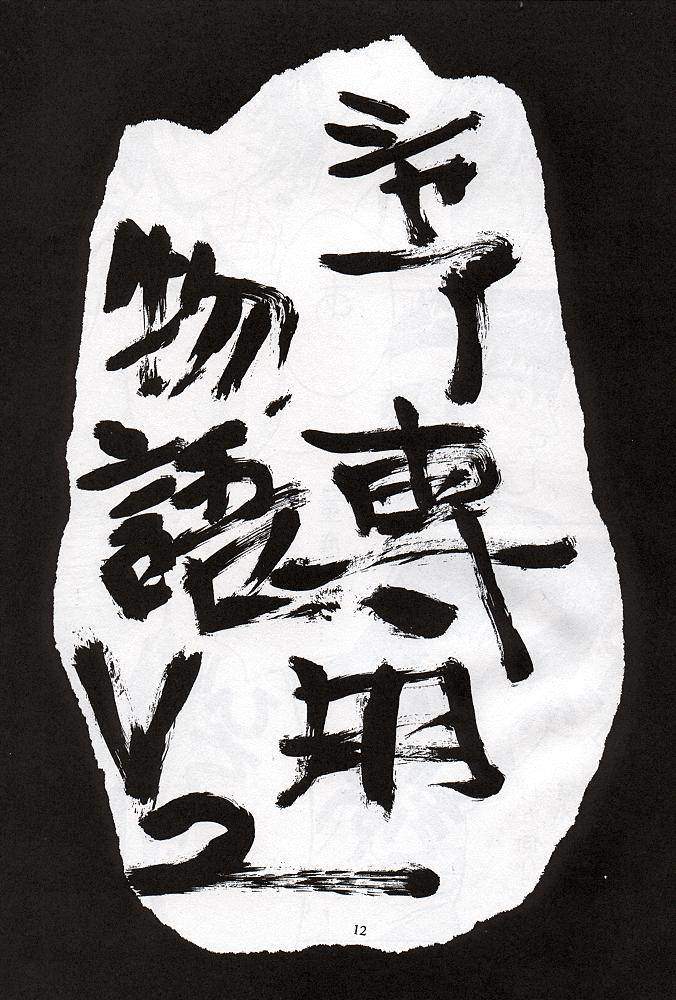 シャア専用
物語V2
12